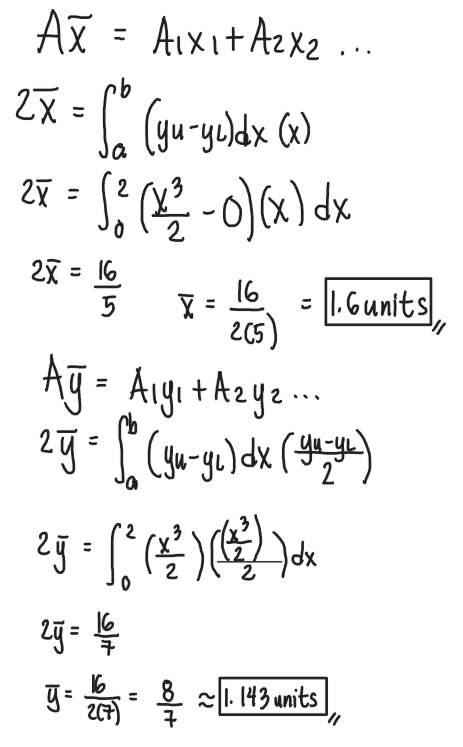 Ax̄ = A₁x₁ + A₂x₂ ...
2x̄ = ∫ₐᵇ (yu - yL)dx (x)
2x̄ = ∫₀² (x³/2 - 0)(x) dx
2x̄ = 16/5   x̄ = 16/2(5) = 1.6 units
Aȳ = A₁y₁ + A₂y₂ ...
2ȳ = ∫ₐᵇ (yu - yL) dx ((yu - yL)/2)
2ȳ = ∫₀² (x³/2)((x³/2)/2) dx
2ȳ = 16/7
ȳ = 16/2(7) = 8/7 ≈ 1.143 units